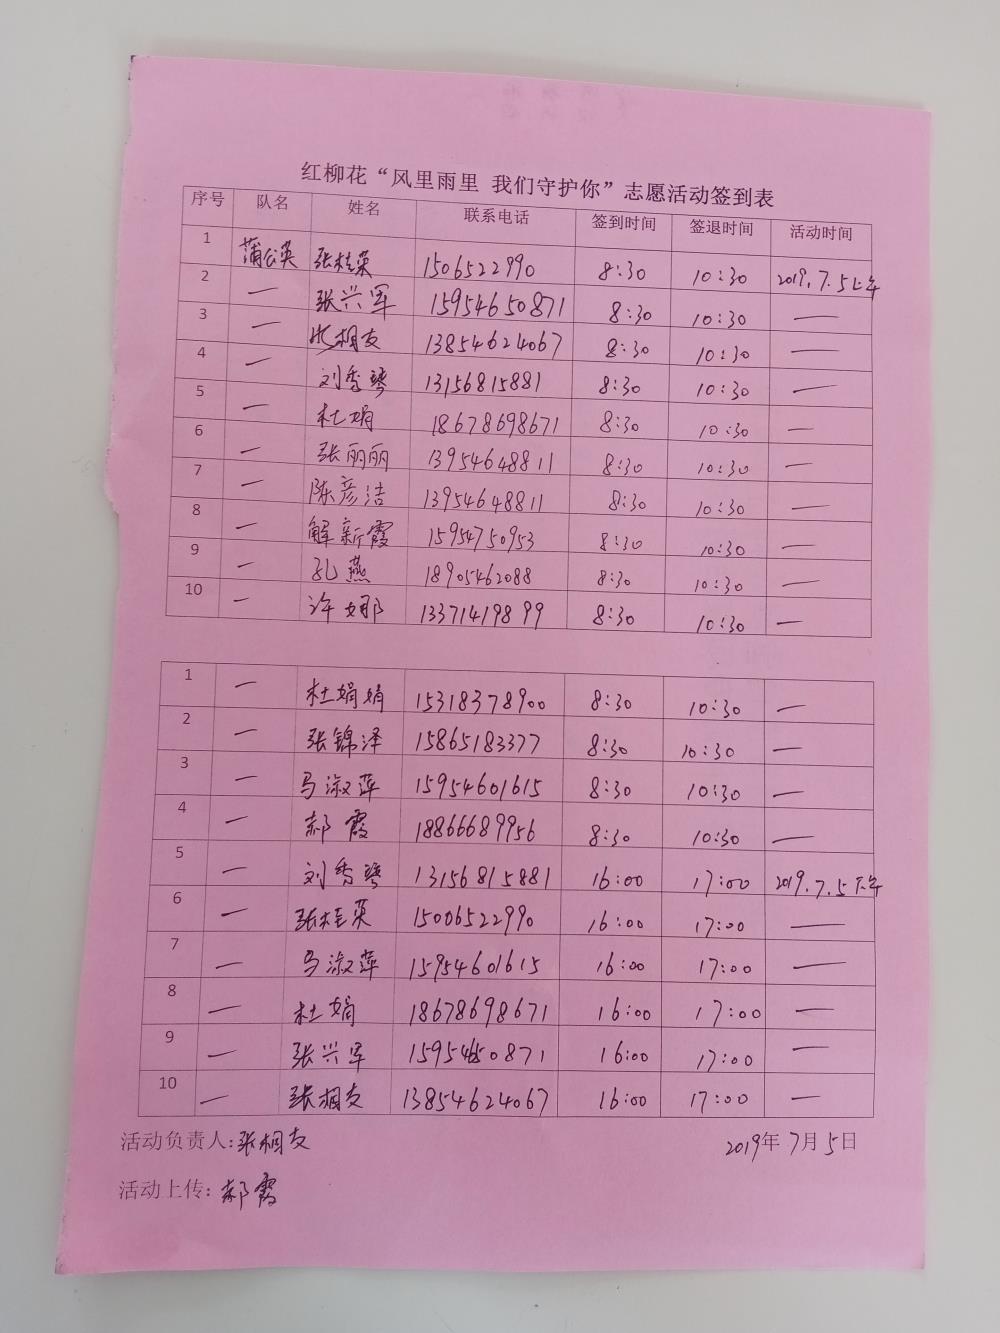 红柳花“风里雨里 我们守护你”志愿活动签到表
序号 队名 姓名 联系电话 签到时间 签退时间 活动时间
1 蒲公英 张桂荣 1506522990 8:30 10:30 2019.7.5上午
2 一 张兴军 15954650871 8:30 10:30 一
3 一 张相友 13854624067 8:30 10:30 一
4 一 刘秀琴 13156815881 8:30 10:30 一
5 一 杜娟 18678698671 8:30 10:30 一
6 一 张丽丽 13954648811 8:30 10:30 一
7 一 陈彦洁 13954648811 8:30 10:30 一
8 一 解新霞 15954750953 8:30 10:30 一
9 一 孔燕 18905462088 8:30 10:30 一
10 一 许娜 13371419899 8:30 10:30 一
1 一 杜娟娟 15318378900 8:30 10:30 一
2 一 张锦泽 15865183377 8:30 10:30 一
3 一 马淑萍 15954601615 8:30 10:30 一
4 一 郝霞 18866689956 8:30 10:30 一
5 一 刘秀琴 13156815881 16:00 17:00 2019.7.5下午
6 一 张桂荣 15006522990 16:00 17:00 一
7 一 马淑萍 15954601615 16:00 17:00 一
8 一 杜娟 18678698671 16:00 17:00 一
9 一 张兴军 15954650871 16:00 17:00 一
10 一 张相友 13854624067 16:00 17:00 一
活动负责人:张相友 2019年7月5日
活动上传:郝霞